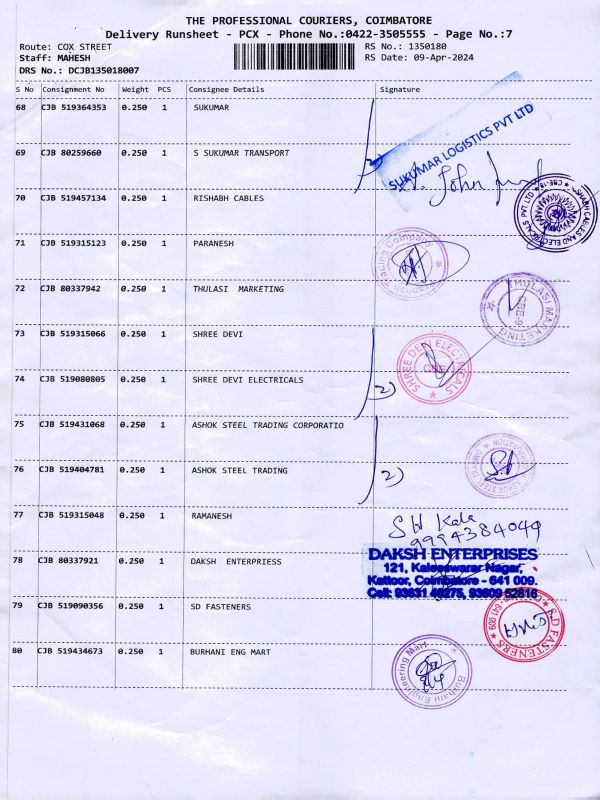 THE PROFESSIONAL COURIERS, COIMBATORE
Delivery Runsheet - PCX - Phone No.:0422-3505555 - Page No.:7
Route: COX STREET RS No.: 1350180
Staff: MAHESH RS Date: 09-Apr-2024
DRS No.: DCJB135018007
S No Consignment No Weight PCS Consignee Details Signature
68 CJB 519364353 0.250 1 SUKUMAR
SUKUMAR LOGISTICS PVT LTD
69 CJB 80259660 0.250 1 S SUKUMAR TRANSPORT
John
70 CJB 519457134 0.250 1 RISHABH CABLES
RISHABH CABLES AND ELECTRICALS PVT. LTD CBE-18
71 CJB 519315123 0.250 1 PARANESH
Company
72 CJB 80337942 0.250 1 THULASI MARKETING
THULASI MARKETING CBE-9
73 CJB 519315066 0.250 1 SHREE DEVI
SHREE DEVI ELECTRICALS CBE
74 CJB 519080805 0.250 1 SHREE DEVI ELECTRICALS
2)
75 CJB 519431068 0.250 1 ASHOK STEEL TRADING CORPORATIO
ASHOK STEEL TRADING CORPORATION
76 CJB 519404781 0.250 1 ASHOK STEEL TRADING
2)
77 CJB 519315048 0.250 1 RAMANESH
Kala
9994384049
78 CJB 80337921 0.250 1 DAKSH ENTERPRIESS
DAKSH ENTERPRISES
121, Kaleeswarar Nagar,
Kattoor, Coimbatore - 641 009.
Cell: 93631 46275, 93609 52816
79 CJB 519090356 0.250 1 SD FASTENERS
S.D FASTENERS 641 009
80 CJB 519434673 0.250 1 BURHANI ENG MART
Burhani Engineering Mart